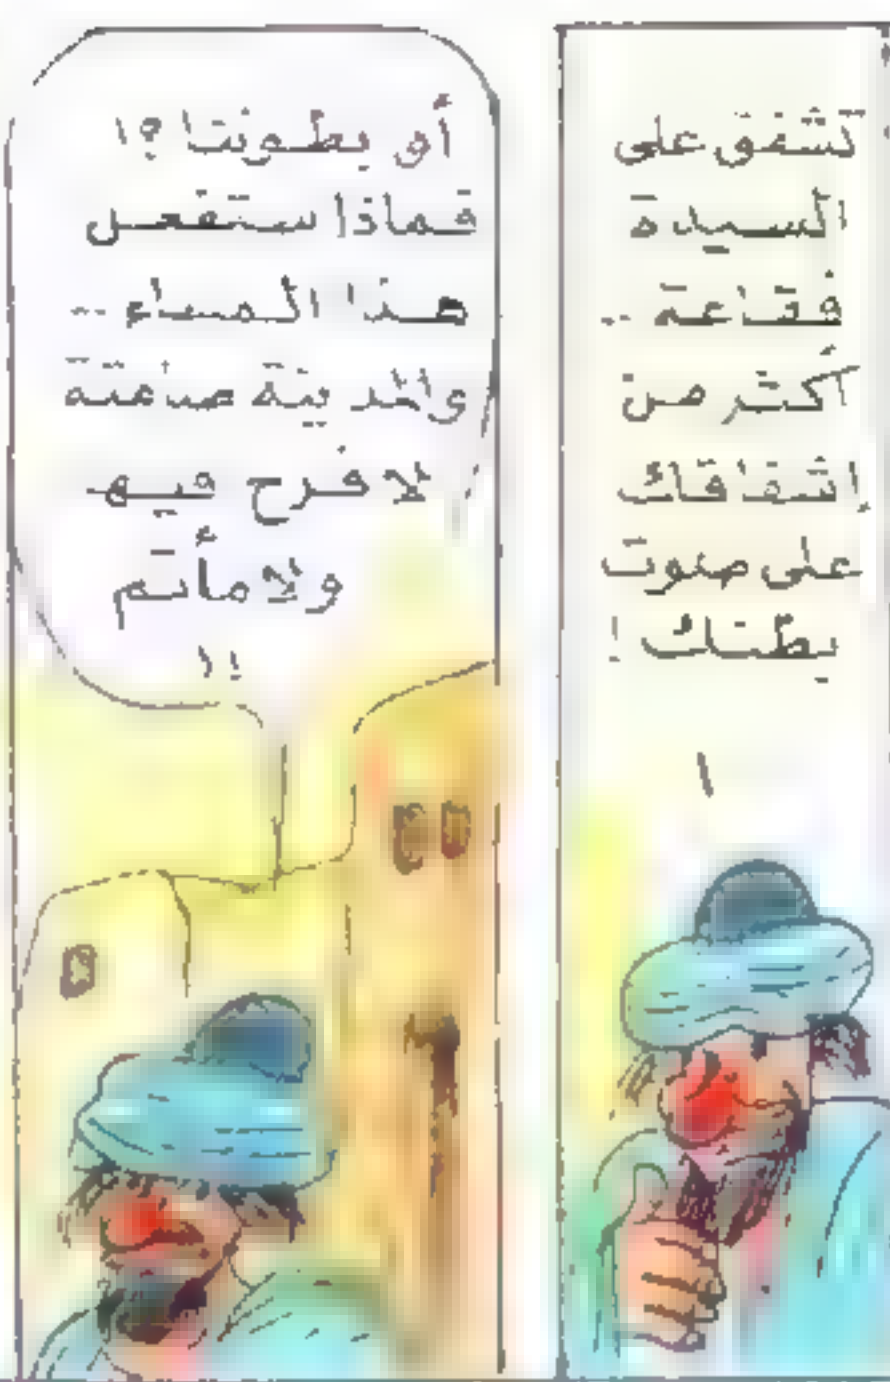 تشفق على
السيدة
فقاعة ..
أكثر من
إشفاقك
على صوت
بطنك !
أو بطوننا ؟!
فماذا ستفعل
هذا المساء ..
والمدينة صامتة
لا فرح فيها
ولا مأتم
!!